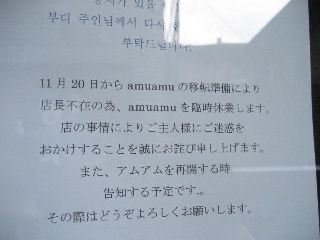 부디 주인님께서 다시
부탁드립니다.
11月20日からamuamuの移転準備により
店長不在の為、amuamuを臨時休業します。
店の事情によりご主人様にご迷惑を
おかけすることを誠にお詫び申し上げます。
また、アムアムを再開する時
告知する予定です。
その際はどうぞよろしくお願いします。